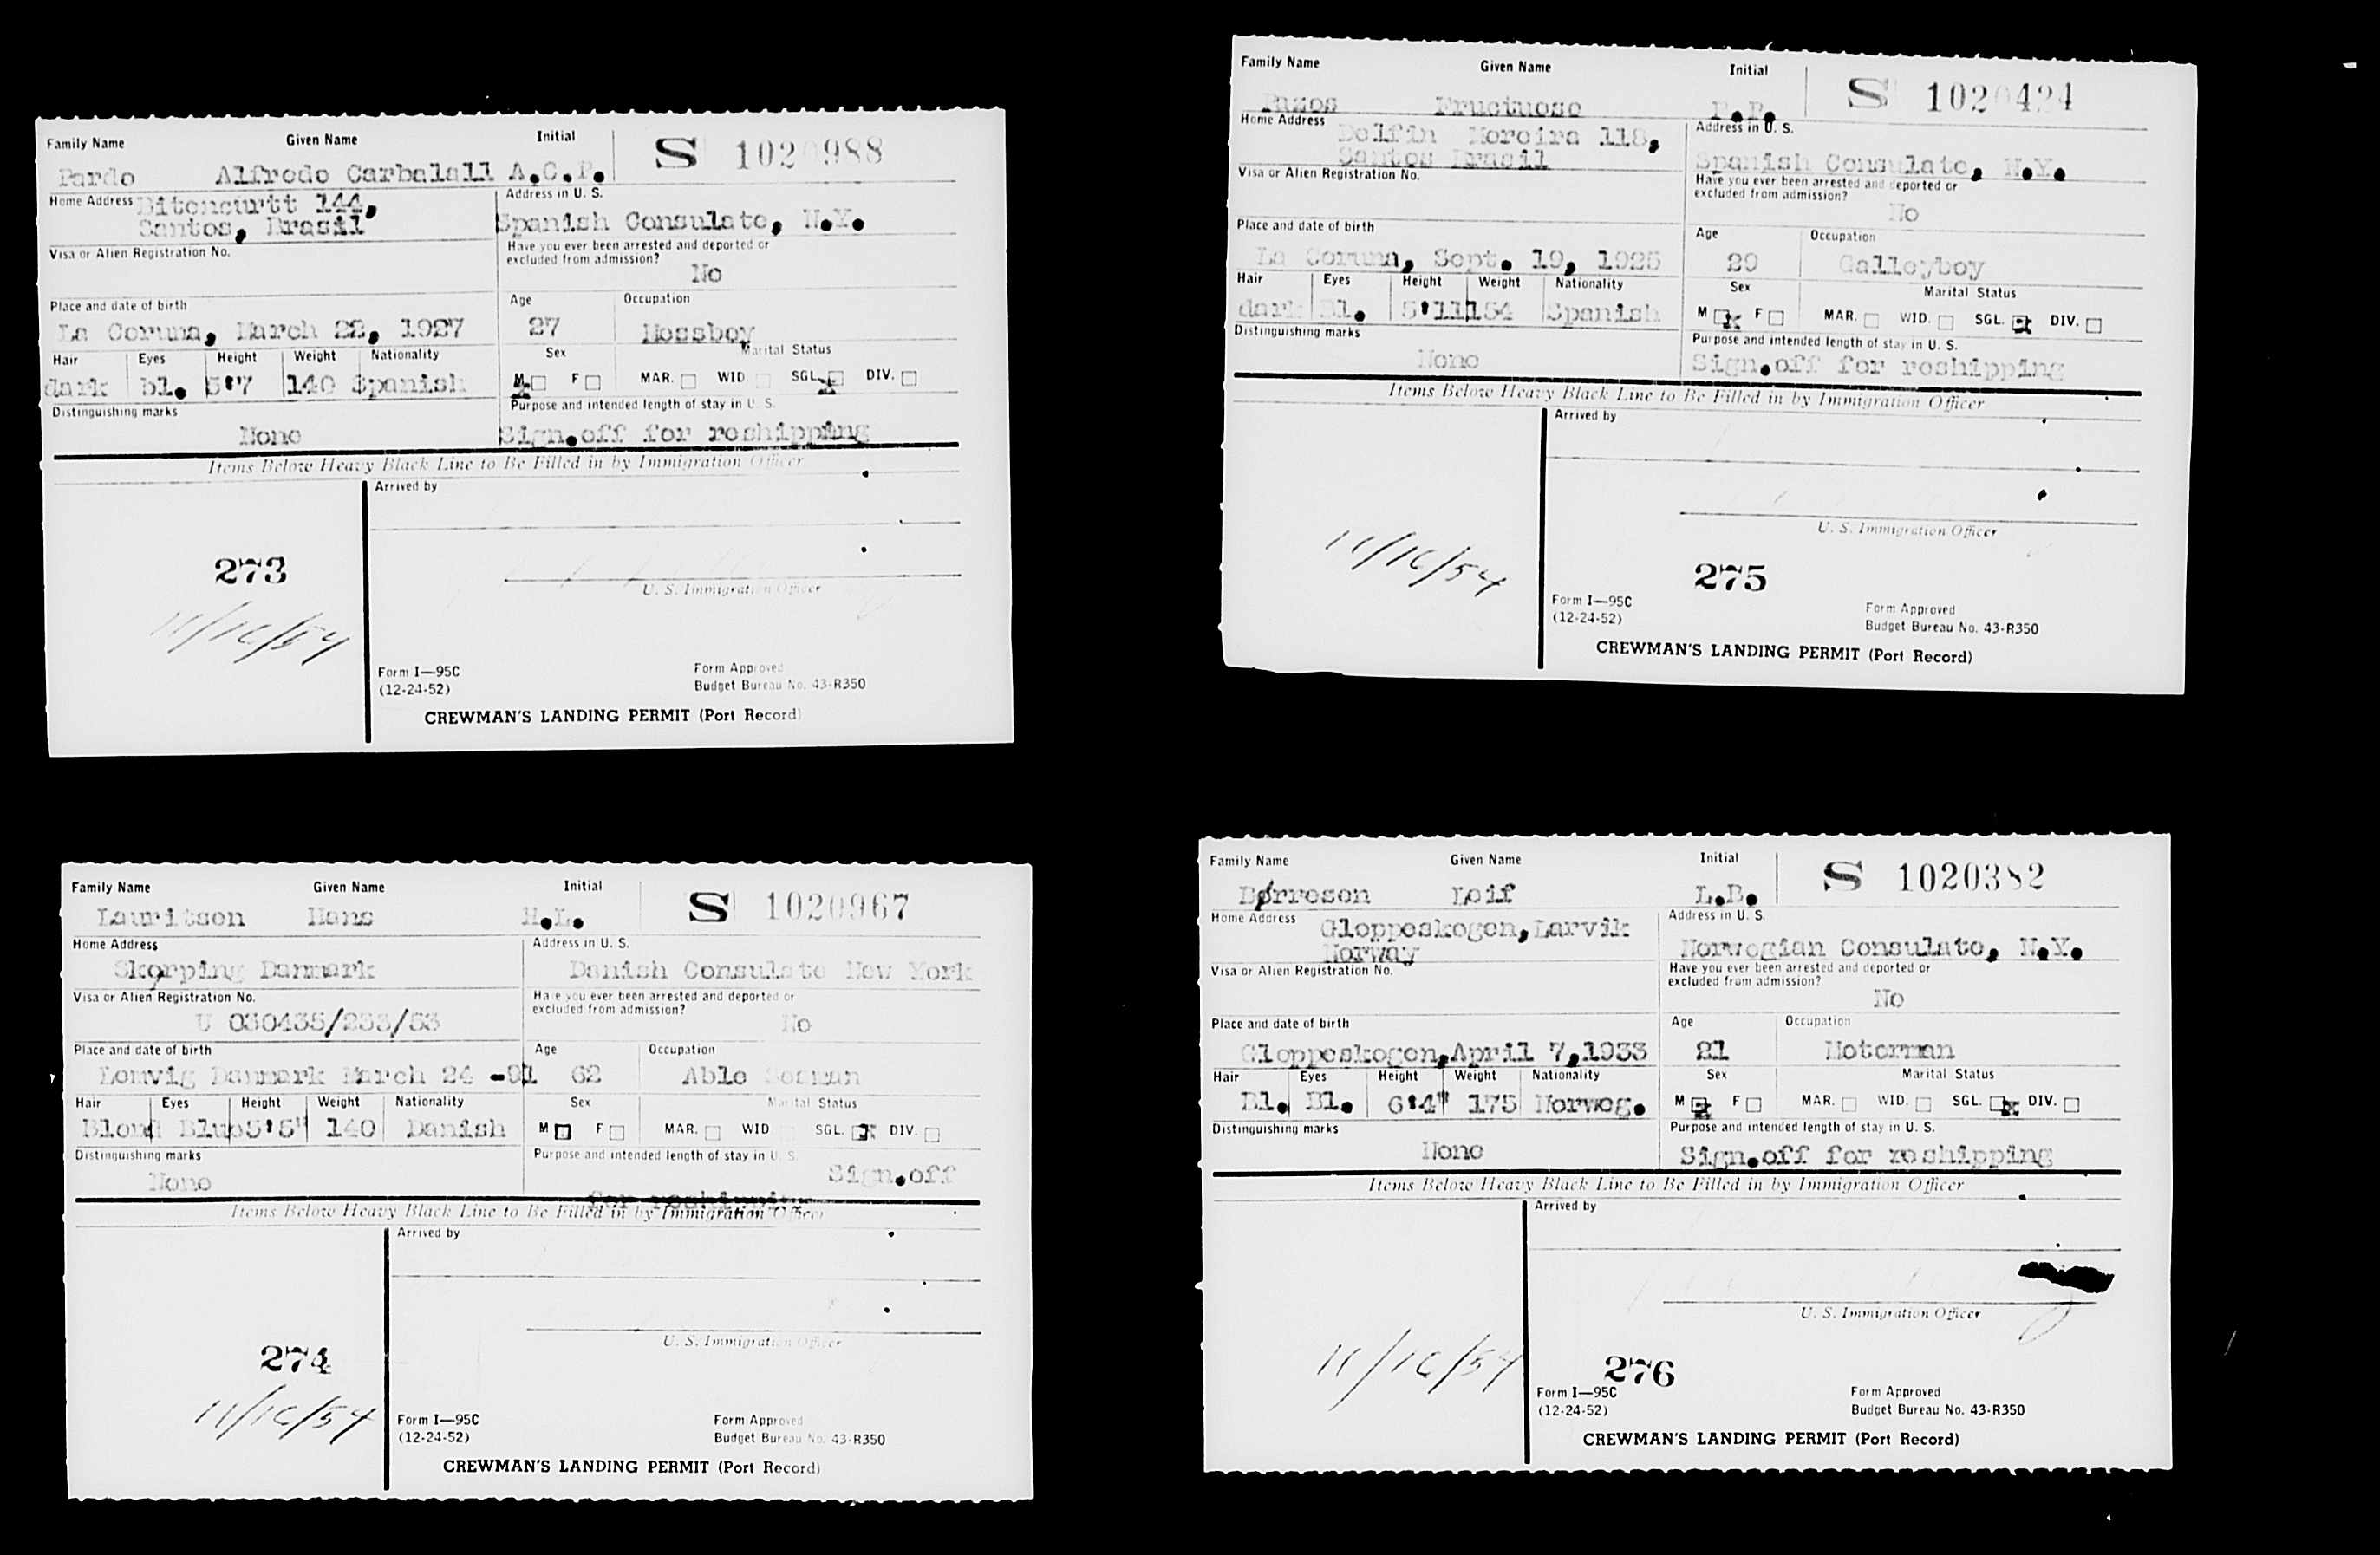 Family Name Given Name Initial S 1020988
Pardo Alfredo Carbalall A.C.P.
Home Address Bitencurtt 144, Address in U. S.
Santos, Brasil Spanish Consulate, N.Y.
Visa or Alien Registration No. Have you ever been arrested and deported or
excluded from admission?
No
Place and date of birth Age Occupation
La Coruna, March 22, 1927 27 Messboy
Hair Eyes Height Weight Nationality Sex Marital Status
dark bl. 5'7 140 Spanish M F MAR. WID. SGL. DIV.
Distinguishing marks Purpose and intended length of stay in U. S.
None Sign.off for reshipping
Items Below Heavy Black Line to Be Filled in by Immigration Officer
Arrived by
273
U. S. Immigration Officer
11/16/54
Form I—95C Form Approved
(12-24-52) Budget Bureau No. 43-R350
CREWMAN'S LANDING PERMIT (Port Record)
Family Name Given Name Initial S 1020424
Pazos Fructuoso F.P.
Home Address Delfin Moreira 118, Address in U. S.
Santos Brasil Spanish Consulate, N.Y.
Visa or Alien Registration No. Have you ever been arrested and deported or
excluded from admission?
No
Place and date of birth Age Occupation
La Coruna, Sept. 19, 1925 29 Galleyboy
Hair Eyes Height Weight Nationality Sex Marital Status
dark Bl. 5'11 154 Spanish M F MAR. WID. SGL. DIV.
Distinguishing marks Purpose and intended length of stay in U. S.
None Sign.off for reshipping
Items Below Heavy Black Line to Be Filled in by Immigration Officer
Arrived by
U. S. Immigration Officer
11/16/54
275
Form I—95C Form Approved
(12-24-52) Budget Bureau No. 43-R350
CREWMAN'S LANDING PERMIT (Port Record)
Family Name Given Name Initial S 1020967
Lauritsen Hans H.L.
Home Address Address in U. S.
Skørping Danmark Danish Consulate New York
Visa or Alien Registration No. Have you ever been arrested and deported or
excluded from admission?
U 030435/233/53 No
Place and date of birth Age Occupation
Lemvig Danmark March 24 -91 62 Able Seaman
Hair Eyes Height Weight Nationality Sex Marital Status
Blond Blue 5'5" 140 Danish M F MAR. WID SGL. DIV.
Distinguishing marks Purpose and intended length of stay in U. S.
None Sign.off
for reshipping
Items Below Heavy Black Line to Be Filled in by Immigration Officer
Arrived by
U. S. Immigration Officer
274
11/16/54
Form I—95C Form Approved
(12-24-52) Budget Bureau No. 43-R350
CREWMAN'S LANDING PERMIT (Port Record)
Family Name Given Name Initial S 1020382
Børresen Leif L.B.
Home Address Gloppeskogen, Larvik Address in U. S.
Norway Norwegian Consulate, N.Y.
Visa or Alien Registration No. Have you ever been arrested and deported or
excluded from admission?
No
Place and date of birth Age Occupation
Gloppeskogen, April 7, 1933 21 Motorman
Hair Eyes Height Weight Nationality Sex Marital Status
Bl. Bl. 6'4" 175 Norweg. M F MAR. WID. SGL. DIV.
Distinguishing marks Purpose and intended length of stay in U. S.
None Sign.off for reshipping
Items Below Heavy Black Line to Be Filled in by Immigration Officer
Arrived by
U. S. Immigration Officer
11/16/54
276
Form I—95C Form Approved
(12-24-52) Budget Bureau No. 43-R350
CREWMAN'S LANDING PERMIT (Port Record)